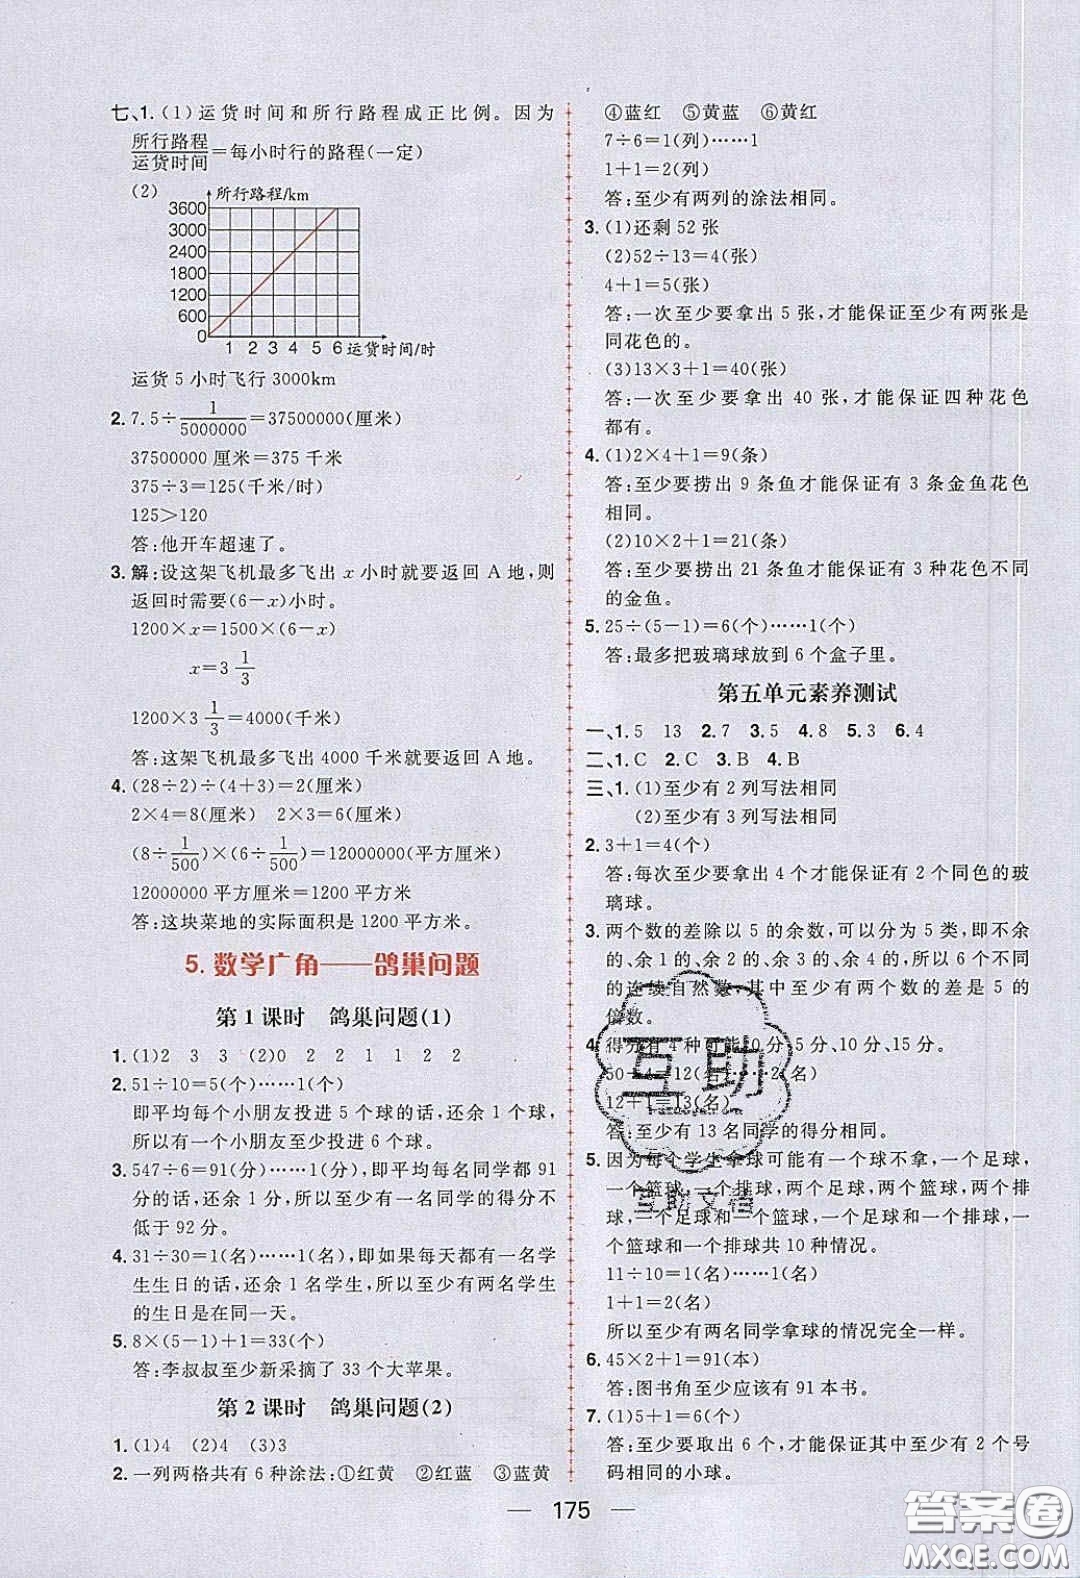 七、1.(1)运货时间和所行路程成正比例。因为
所行路程/运货时间=每小时行的路程(一定)
(2)
所行路程/km
3600
3000
2400
1800
1200
600
0
1 2 3 4 5 6 运货时间/时
运货 5 小时飞行 3000km
2. 7.5÷1/5000000=37500000(厘米)
37500000 厘米=375 千米
375÷3=125(千米/时)
125>120
答:他开车超速了。
3. 解:设这架飞机最多飞出 x 小时就要返回 A 地,则
返回时需要(6-x)小时。
1200×x=1500×(6-x)
x=3 1/3
1200×3 1/3=4000(千米)
答:这架飞机最多飞出 4000 千米就要返回 A 地。
4. (28÷2)÷(4+3)=2(厘米)
2×4=8(厘米) 2×3=6(厘米)
(8÷1/500)×(6÷1/500)=12000000(平方厘米)
12000000 平方厘米=1200 平方米
答:这块菜地的实际面积是 1200 平方米。
5. 数学广角——鸽巢问题
第 1 课时 鸽巢问题(1)
1. (1)2 3 3 (2)0 2 2 1 1 2 2
2. 51÷10=5(个)……1(个)
即平均每个小朋友投进 5 个球的话,还余 1 个球,
所以有一个小朋友至少投进 6 个球。
3. 547÷6=91(分)……1(分),即平均每名同学 91
分的话,还余 1 分,所以至少有一名同学的得分不
低于 92 分。
4. 31÷30=1(名)……1(名),即如果每天都有一名学
生生日的话,还余 1 名学生,所以至少有两名学生
的生日是在同一天。
5. 8×(5-1)+1=33(个)
答:李叔叔至少新采摘了 33 个大苹果。
第 2 课时 鸽巢问题(2)
1. (1)4 (2)4 (3)3
2. 一列两格共有 6 种涂法:①红黄 ②红蓝 ③蓝黄
④蓝红 ⑤黄蓝 ⑥黄红
7÷6=1(列)……1
1+1=2(列)
答:至少有两列的涂法相同。
3. (1)还剩 52 张
(2)52÷13=4(张)
4+1=5(张)
答:一次至少要拿出 5 张,才能保证至少有两张是
同花色的。
(3)13×3+1=40(张)
答:一次至少要拿出 40 张,才能保证四种花色
都有。
4. (1)2×4+1=9(条)
答:至少要捞出 9 条鱼才能保证有 3 条金鱼花色
相同。
(2)10×2+1=21(条)
答:至少要捞出 21 条鱼才能保证有 3 种花色不同
的金鱼。
5. 25÷(5-1)=6(个)……1(个)
答:最多把玻璃球放到 6 个盒子里。
第五单元素养测试
一、1. 5 13 2. 7 3. 5 4. 8 5. 3 6. 4
二、1. C 2. C 3. B 4. B
三、1. (1)至少有 2 列写法相同
(2)至少有 3 列写法相同
2. 3+1=4(个)
答:每次至少要拿出 4 个才能保证有 2 个同色的玻
璃球。
3. 两个数的差除以 5 的余数,可以分为 5 类,即余
0 的、余 1 的、余 2 的、余 3 的、余 4 的,所以 6 个不同
的连续自然数,其中至少有两个数的差是 5 的
倍数。
4. 得分有 4 种可能:0 分、5 分、10 分、15 分。
50÷4=12(名)……2(名)
12+1=13(名)
答:至少有 13 名同学的得分相同。
5. 因为每个学生拿球可能有一个球不拿,一个足球,
一个篮球,一个排球,两个足球,两个篮球,两个排
球,一个足球和一个篮球,一个足球和一个排球,
一个篮球和一个排球共 10 种情况。
11÷10=1(名)……1(名)
1+1=2(名)
所以至少有两名同学拿球的情况完全一样。
6. 45×2+1=91(本)
答:图书角至少应该有 91 本书。
7. (1)5+1=6(个)
答:至少要取出 6 个,才能保证其中至少有 2 个号
码相同的小球。
175
互助
互助文档
答案圈
MXQE.COM